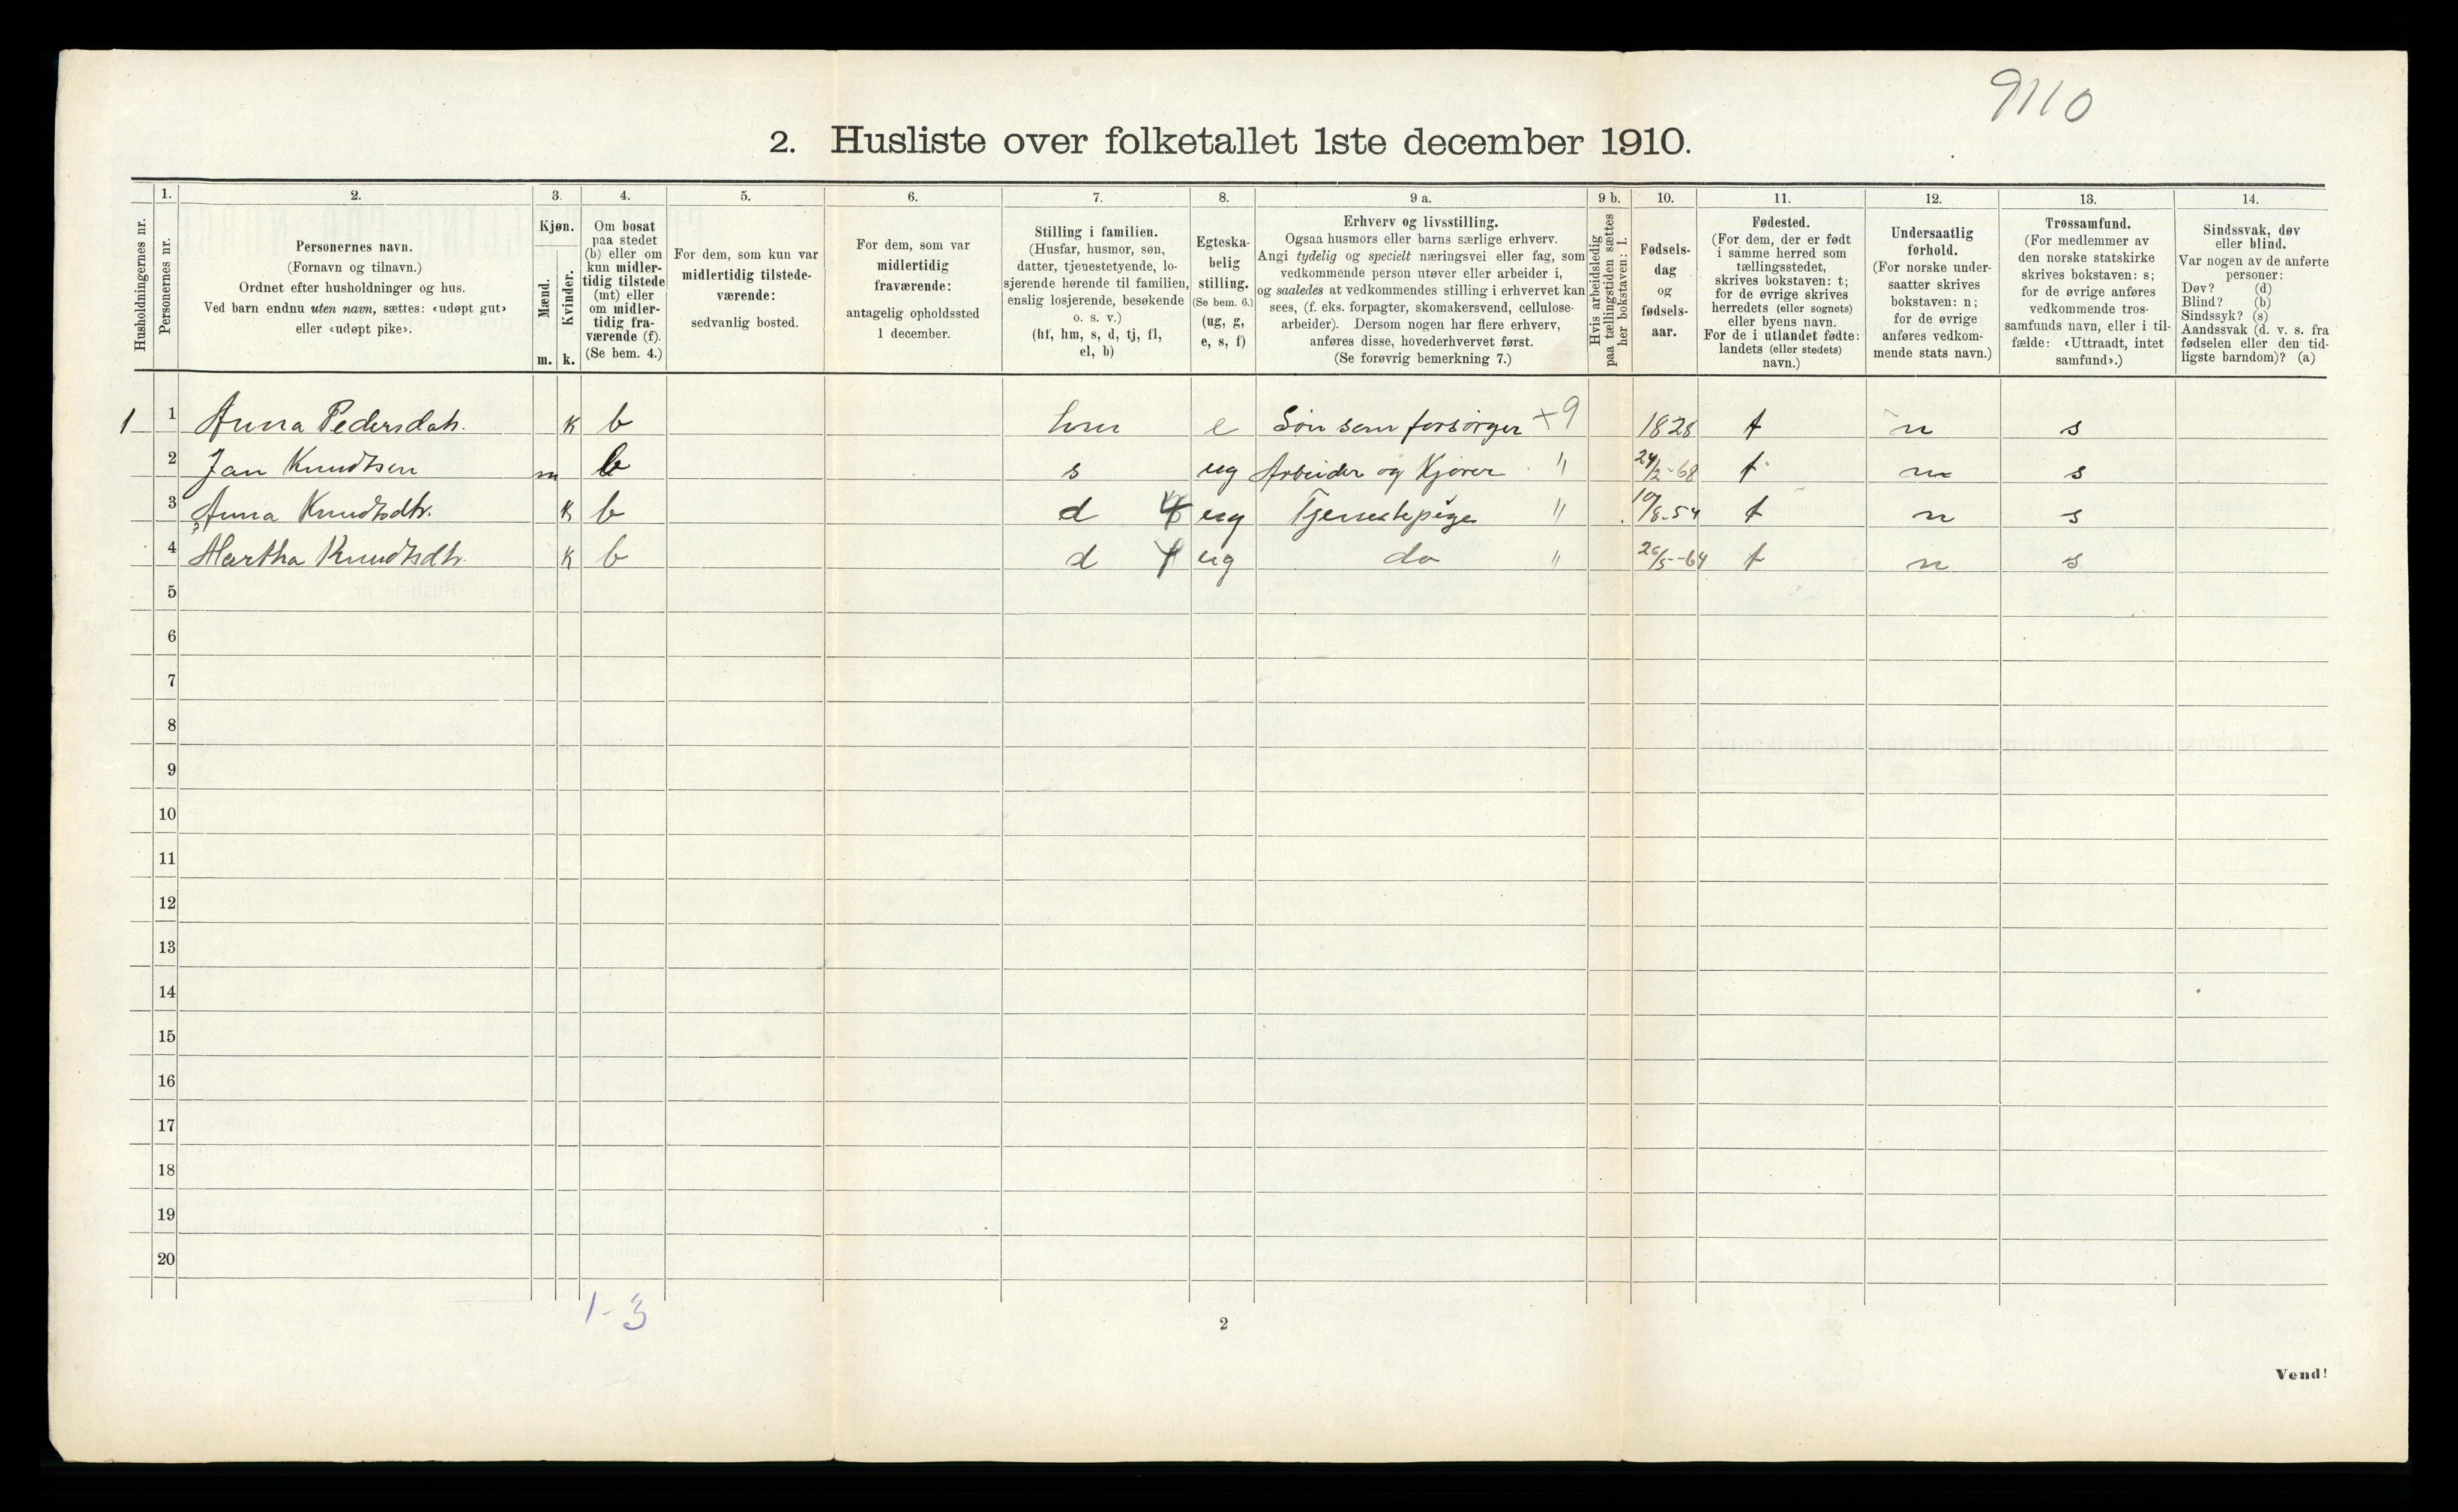 9110
2. Husliste over folketallet 1ste december 1910.
Husholdningernes nr.
1.
Personernes nr.
2.
Personernes navn.
(Fornavn og tilnavn.)
Ordnet efter husholdninger og hus.
Ved barn endnu uten navn, sættes: «udøpt gut»
eller «udøpt pike».
3.
Kjøn.
Mænd.
Kvinder.
m. k.
4.
Om bosat
paa stedet
(b) eller om
kun midler-
tidig tilstede
(mt) eller
om midler-
tidig fra-
værende (f).
(Se bem. 4.)
5.
For dem, som kun var
midlertidig tilstede-
værende:
sedvanlig bosted.
6.
For dem, som var
midlertidig
fraværende:
antagelig opholdssted
1 december.
7.
Stilling i familien.
(Husfar, husmor, søn,
datter, tjenestetyende, lo-
sjerende hørende til familien,
enslig losjerende, besøkende
o. s. v.)
(hf, hm, s, d, tj, fl,
el, b)
8.
Egteska-
belig
stilling.
(Se bem. 6.)
(ug, g,
e, s, f)
9 a.
Erhverv og livsstilling.
Ogsaa husmors eller barns særlige erhverv.
Angi tydelig og specielt næringsvei eller fag, som
vedkommende person utøver eller arbeider i,
og saaledes at vedkommendes stilling i erhvervet kan
sees, (f. eks. forpagter, skomakersvend, cellulose-
arbeider). Dersom nogen har flere erhverv,
anføres disse, hovederhvervet først.
(Se forøvrig bemerkning 7.)
9 b.
Hvis arbeidsledig
paa tællingstiden sættes
her bokstaven: l.
10.
Fødsels-
dag
og
fødsels-
aar.
11.
Fødested.
(For dem, der er født
i samme herred som
tællingsstedet,
skrives bokstaven: t;
for de øvrige skrives
herredets (eller sognets)
eller byens navn.
For de i utlandet fødte:
landets (eller stedets)
navn.)
12.
Undersaatlig
forhold.
(For norske under-
saatter skrives
bokstaven: n;
for de øvrige
anføres vedkom-
mende stats navn.)
13.
Trossamfund.
(For medlemmer av
den norske statskirke
skrives bokstaven: s;
for de øvrige anføres
vedkommende tros-
samfunds navn, eller i til-
fælde: «Uttraadt, intet
samfund».)
14.
Sindssvak, døv
eller blind.
Var nogen av de anførte
personer:
Døv? (d)
Blind? (b)
Sindssyk? (s)
Aandssvak (d. v. s. fra
fødselen eller den tid-
ligste barndom)? (a)
1 1 Anna Pedersdatr. k b hm e Søn som forsørger +9 1828 t n s
2 Jan Knudtsen m b s ug Arbeider og Kjører " 24/2-68 t n s
3 Anna Knudtsdtr. k b d ug Tjenestepige " 10/8-54 t n s
4 Martha Knudtsdtr. k b d ug do " 26/5-64 t n s
5
6
7
8
9
10
11
12
13
14
15
16
17
18
19
20
1-3
2
Vend!